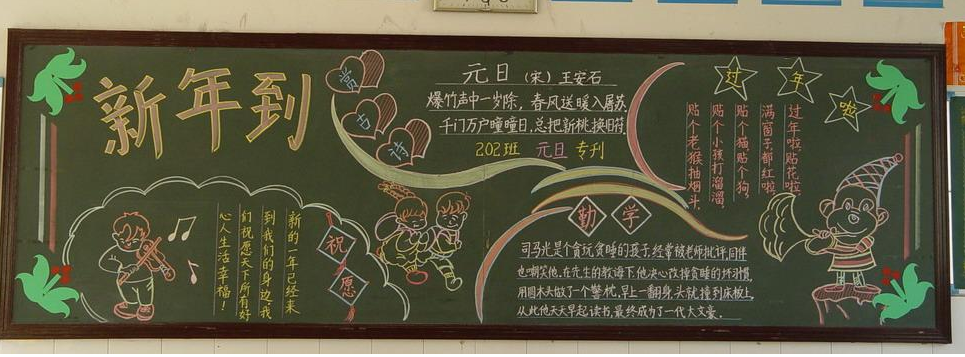 新年到
赏
古
诗
元日 (宋) 王安石
爆竹声中一岁除,春风送暖入屠苏
千门万户曈曈日,总把新桃换旧符
202班 元旦 专刊
过年啦
过年啦,贴花啦,
满窗子,都红啦,
贴个猫,贴个狗,
贴个小孩打溜溜,
贴个老猴抽烟斗。
祝愿
新的一年已经来
到我们的身边,我
们祝愿天下所有好
心人生活幸福!
勤学
司马光是个贪玩贪睡的孩子,经常被老师批评,同伴
也嘲笑他,在先生的教诲下,他决心改掉贪睡的坏习惯,
用圆木头做了一个警枕,早上一翻身,头就撞到床板上,
从此他天天早起读书,最终成为了一代大文豪。